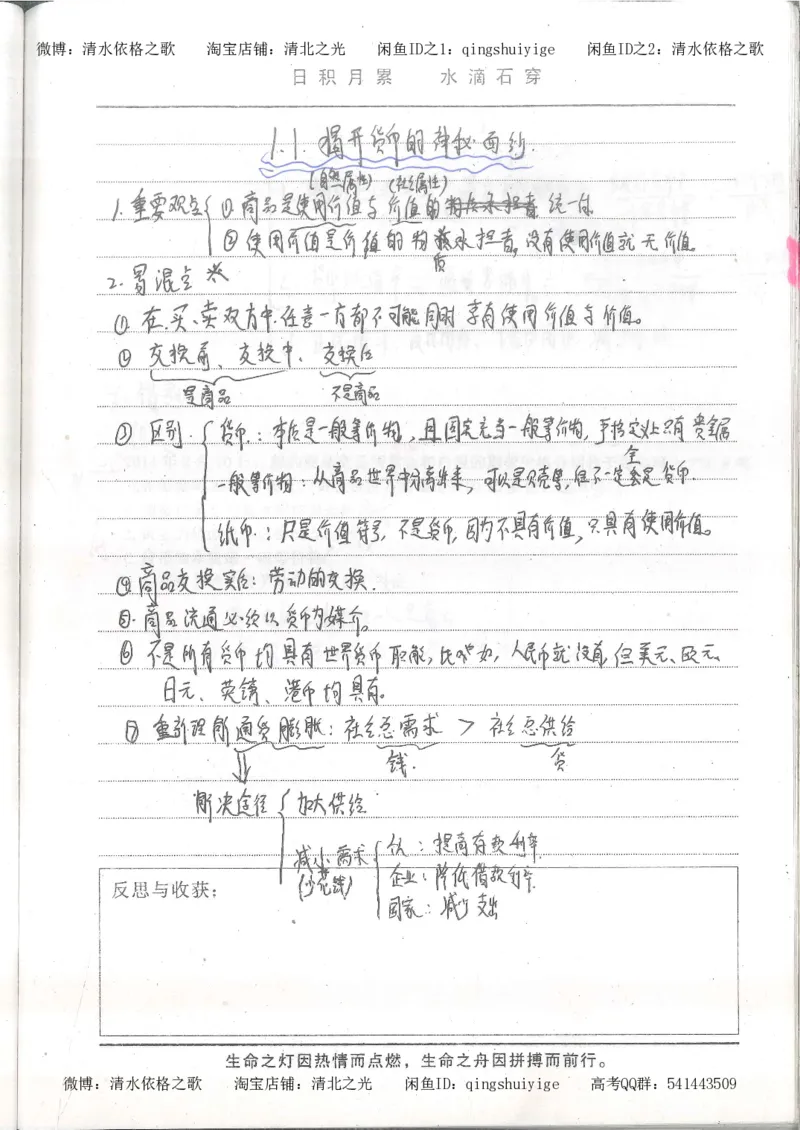 微博：清水依格之歌 淘宝店铺：清北之光 闲鱼ID之1：qingshuiyige 闲鱼ID之2：清水依格之歌
日积月累 水滴石穿
1.1.揭开货币的神秘面纱.
(自然属性) (社会属性)
1.重要观点 ① 商品是使用价值与价值的 统一体
② 使用价值是价值的物质承担者,没有使用价值就无价值。
2.易混点 ※
①.在买、卖双方中.任意一方都不可能同时享有使用价值与价值。
② 交换前、交换中、交换后
是商品 不是商品
③ 区别. 货币：本质是一般等价物,且固定充当一般等价物,严格定义上只有贵金属
一般等价物：从商品世界中分离出来,可以是贝壳等,但不一定全是货币.
纸币.：只是价值符号,不是货币,因为不具有价值,只具有使用价值。
④商品交换实质：劳动的交换.
⑤.商品流通必须以货币为媒介。
⑥ 不是所有货币均具有世界货币职能,比如,人民币就没有,但美元、欧元、
日元、英镑、港币均具有。
⑦ 重新理解通货膨胀：社会总需求 > 社会总供给
钱. 货
解决途径 加大供给
减小需求 (少花钱)
：提高存款利率
企业：降低借款利率.
国家：减少支出
反思与收获：
生命之灯因热情而点燃，生命之舟因拼搏而前行。
微博：清水依格之歌 淘宝店铺：清北之光 闲鱼ID：qingshuiyige 高考QQ群：541443509